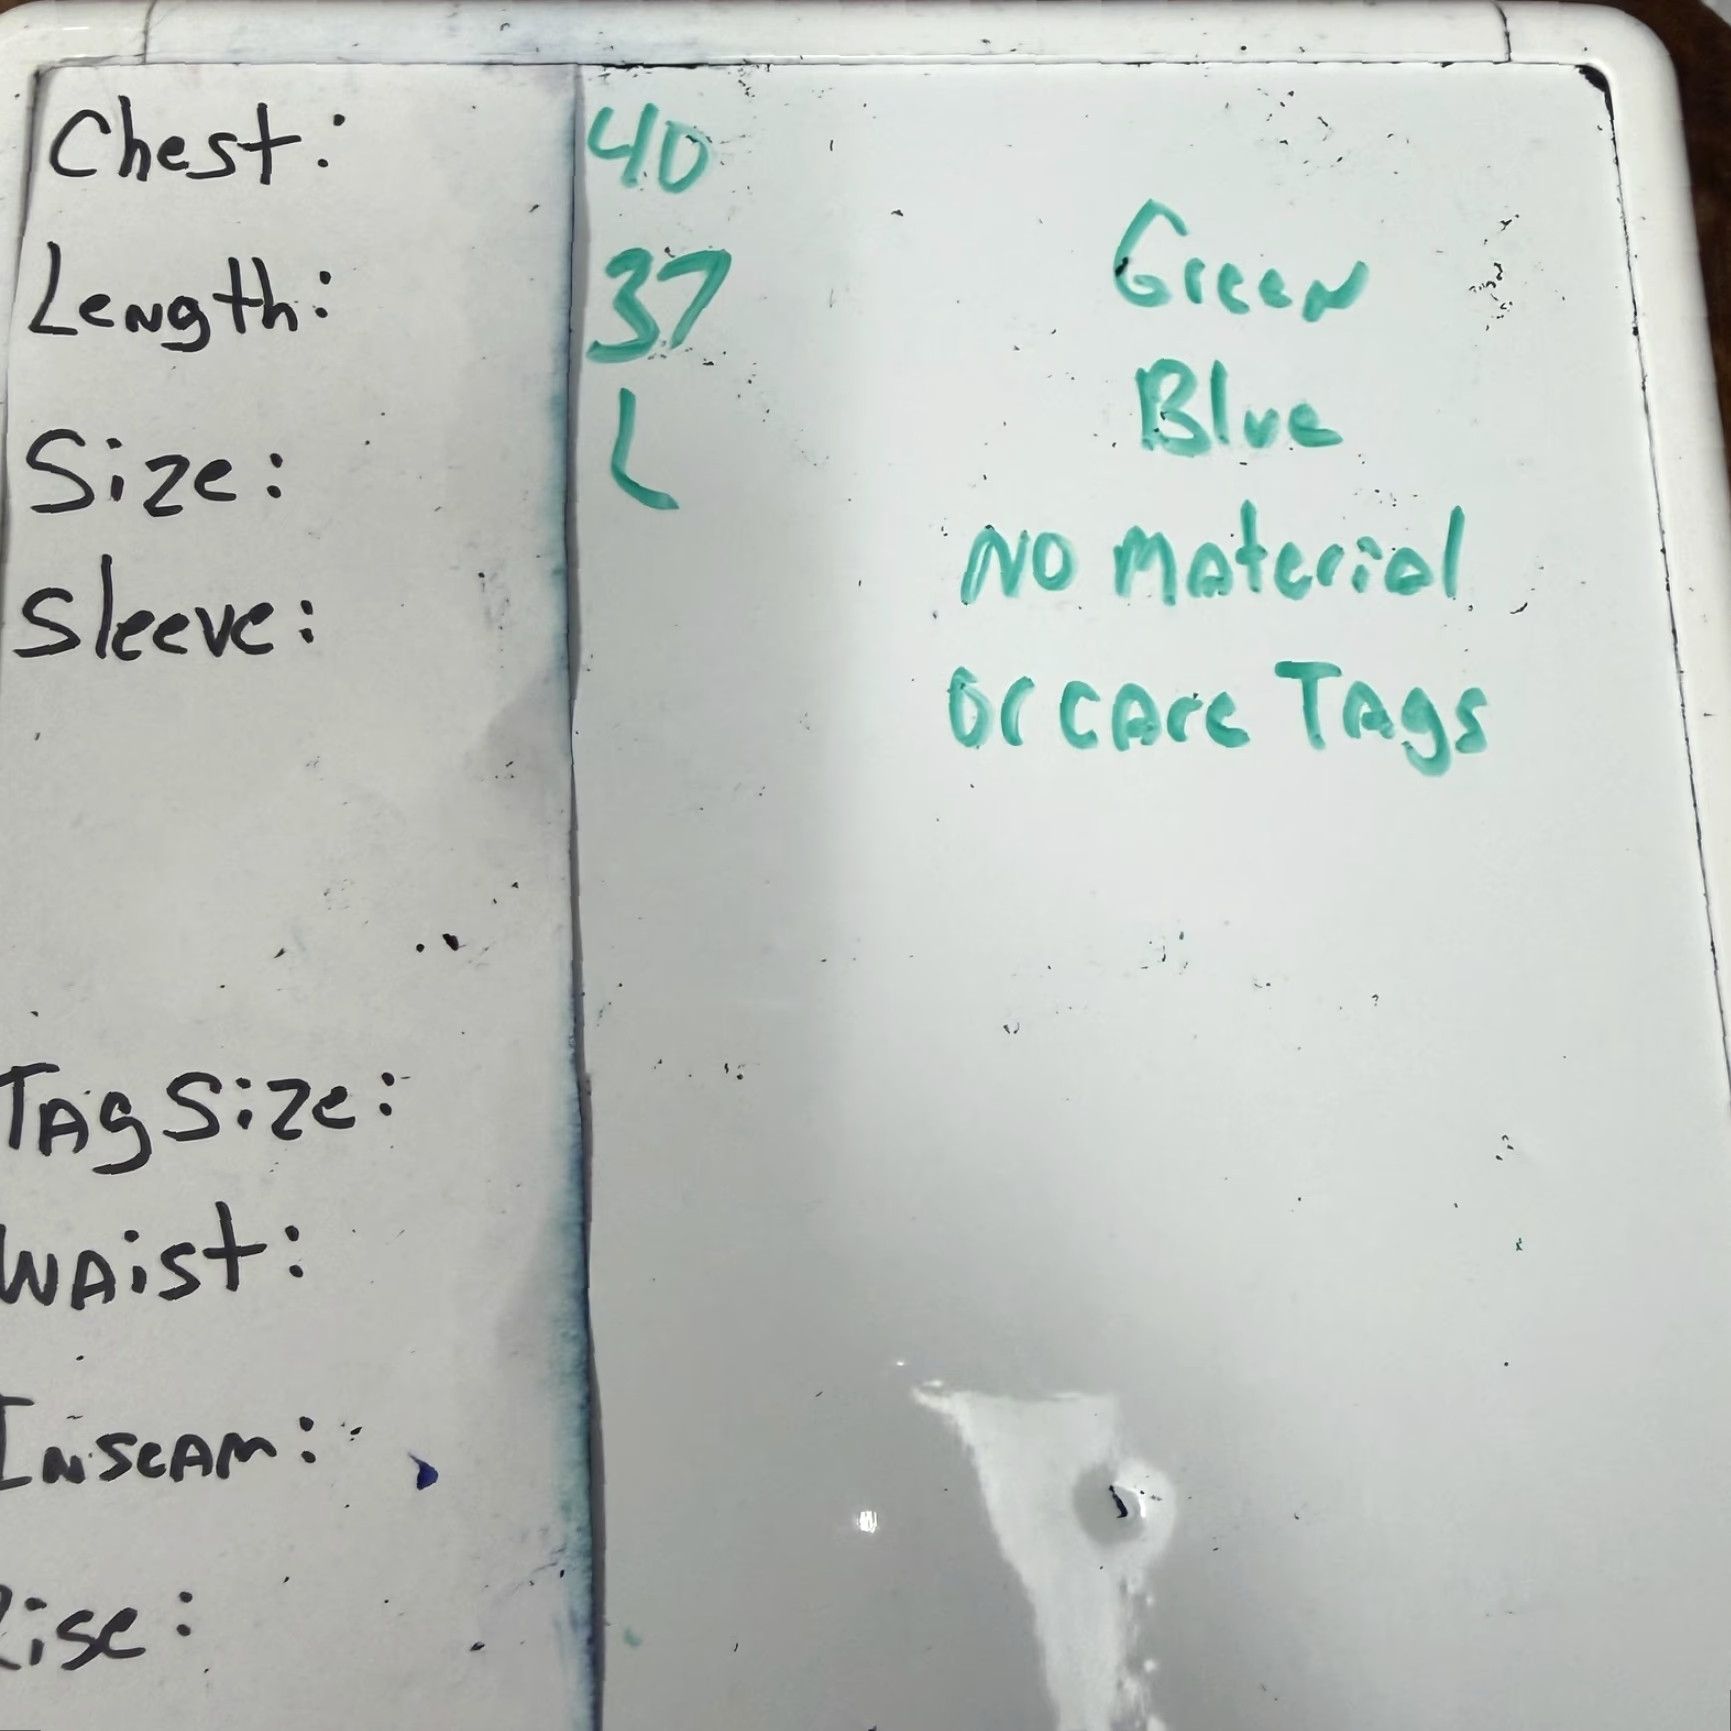 Chest: 40
Length: 37
Green
Size: L
Blue
Sleeve:
No Material
or care Tags
Tag Size:
Waist:
Inseam:
Rise: